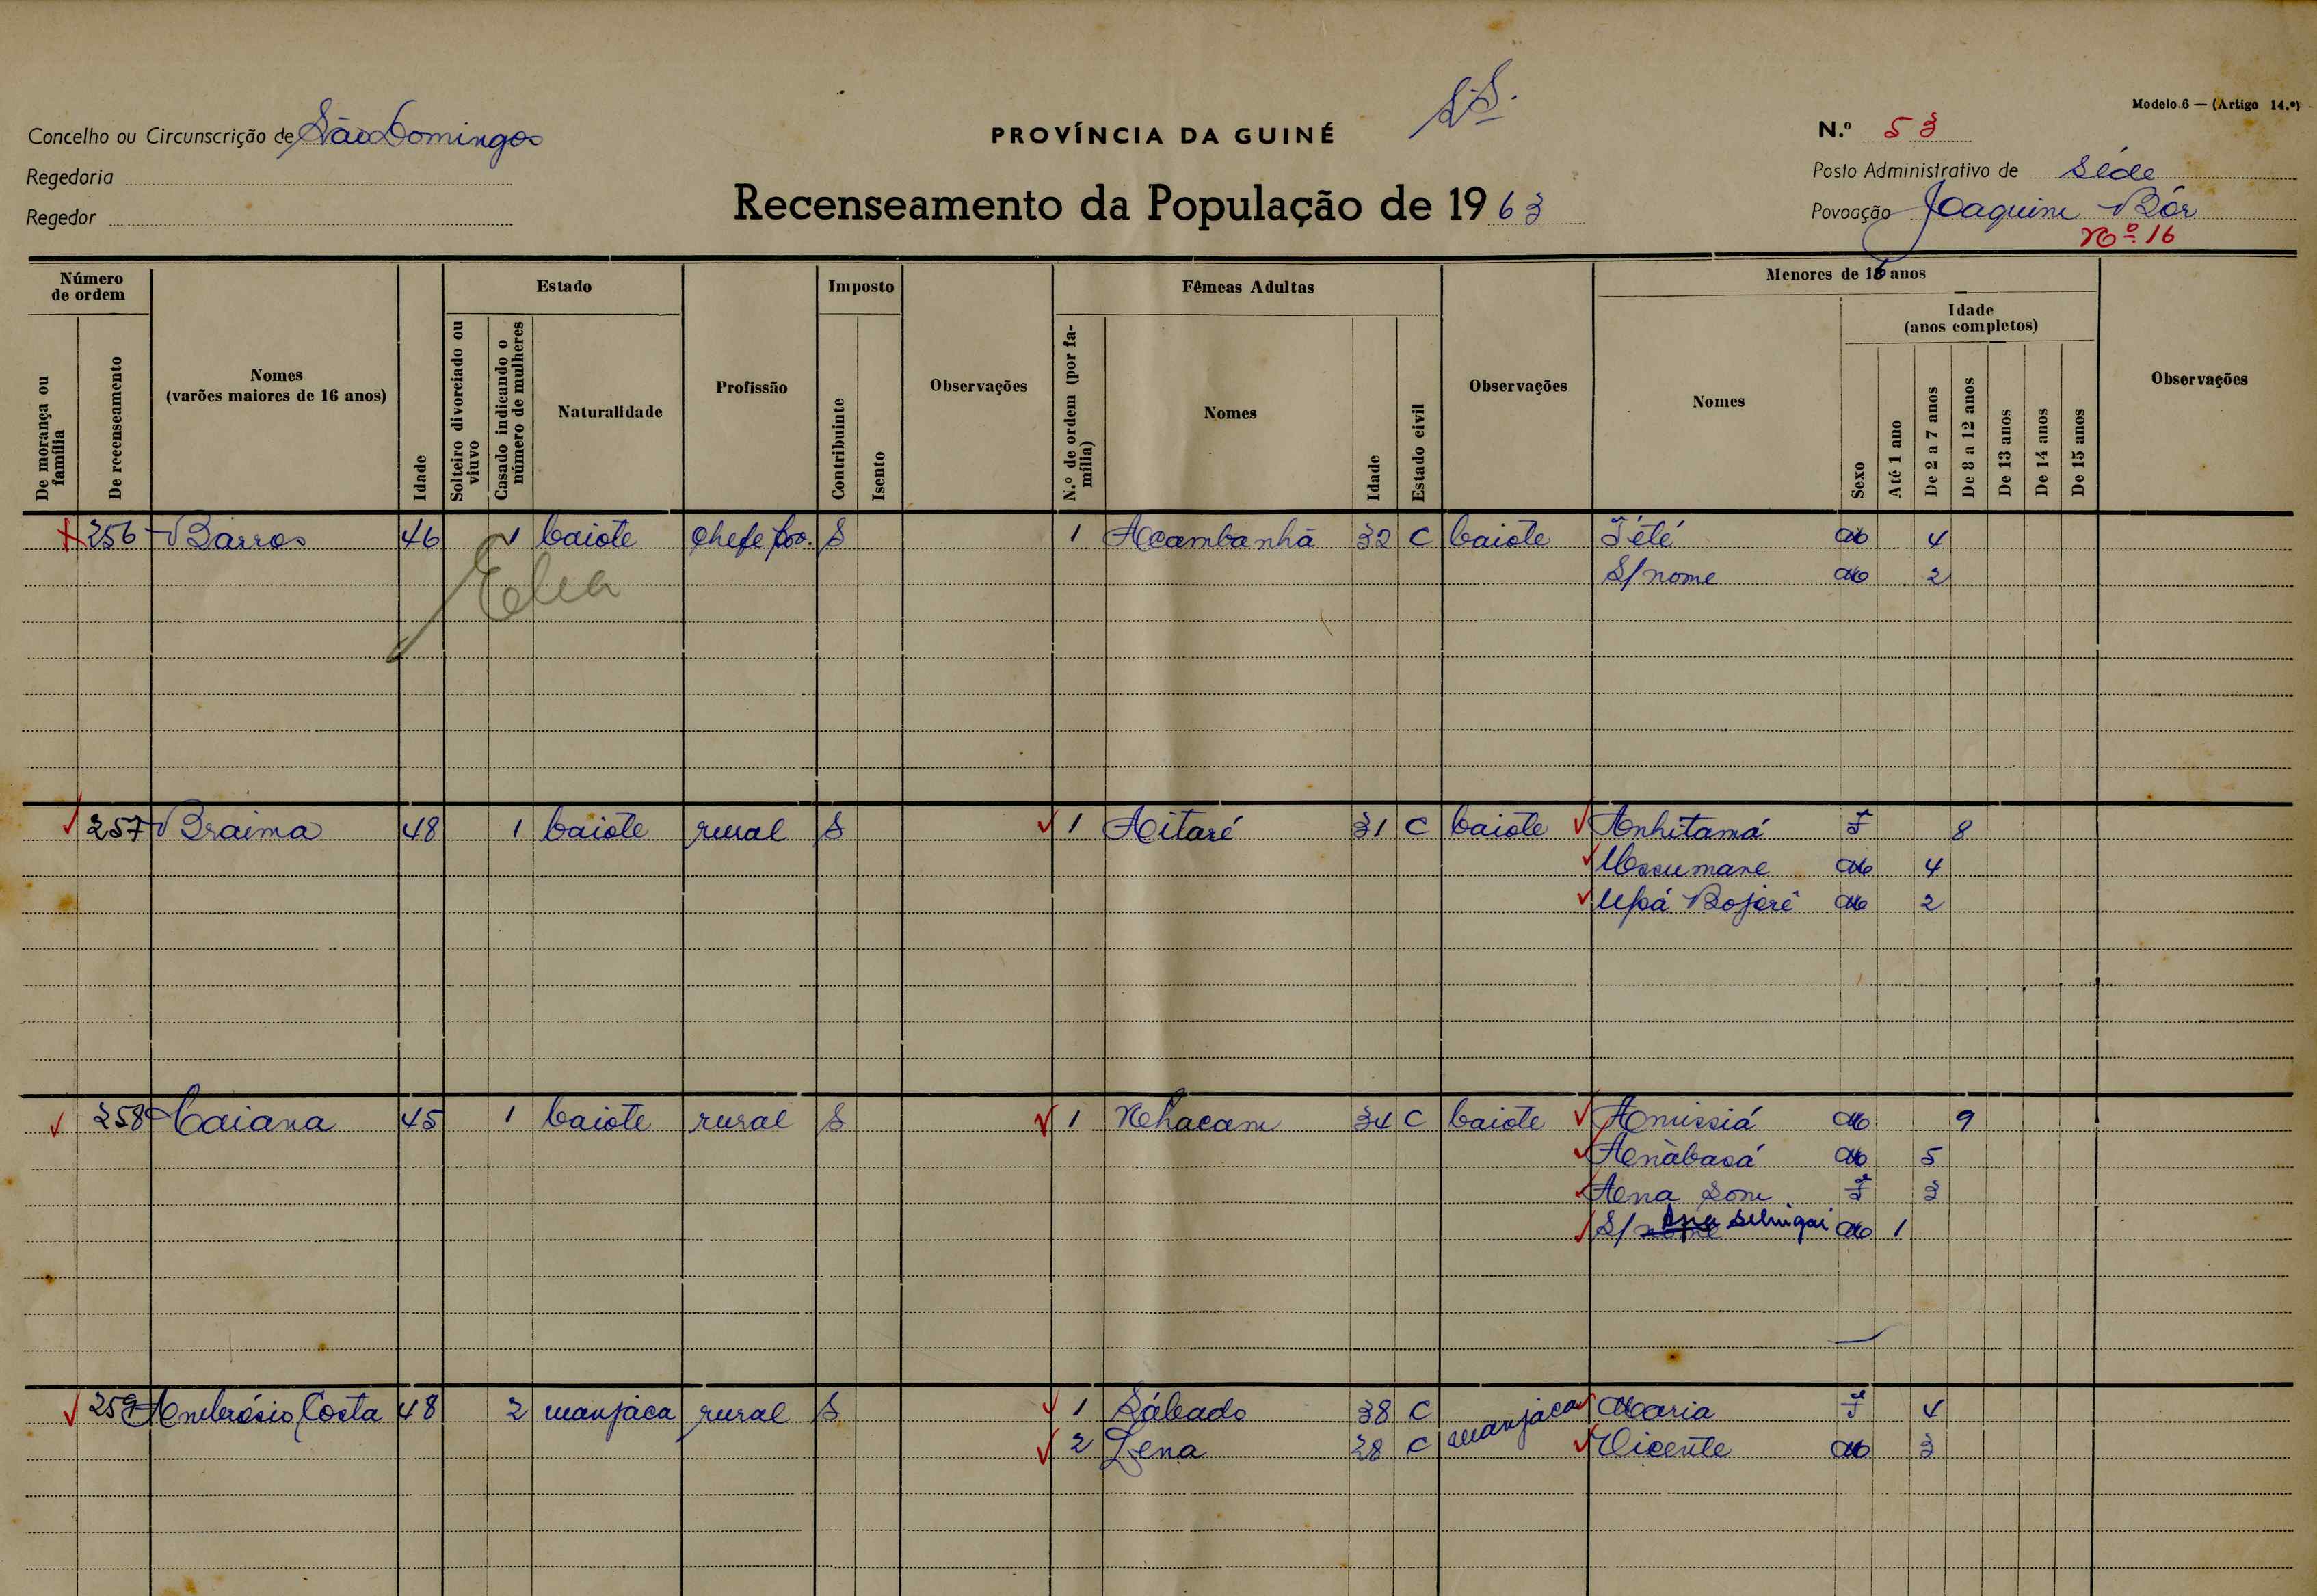 Modelo 6 — (Artigo 14.º)
Concelho ou Circunscrição de São Domingos
PROVÍNCIA DA GUINÉ
N.º 53
Regedoria
Posto Administrativo de Séde
Regedor
Recenseamento da População de 1963
Povoação Joaquim Bór
Nº 16
Número de ordem
Estado
Imposto
Fêmeas Adultas
Menores de 16 anos
Idade (anos completos)
De morança ou família
De recenseamento
Nomes (varões maiores de 16 anos)
Idade
Solteiro divorciado ou viuvo
Casado indicando o número de mulheres
Naturalidade
Profissão
Contribuinte
Isento
Observações
N.º de ordem (por família)
Nomes
Idade
Estado civil
Observações
Nomes
Sexo
Até 1 ano
De 2 a 7 anos
De 8 a 12 anos
De 13 anos
De 14 anos
De 15 anos
Observações
256 Barros 46 1 baiote chefe pov. S 1 Acambanhã 32 C baiote Tété M 4
S/nome M 2
Elia
257 Braima 48 1 baiote rural S 1 Aitaré 31 C baiote Anhitamá F 8
Ussumane M 4
Upá Bojeré M 2
258 Caiana 45 1 baiote rural S 1 Nhacam 34 C baiote Amissiá M 9
Anàbasá M 5
Ana Som F 3
S/nome M 1
259 Ambrósio Costa 48 2 manjaca rural S 1 Sábado 38 C manjaca Maria F 4
2 Lena 28 C Vicente M 3